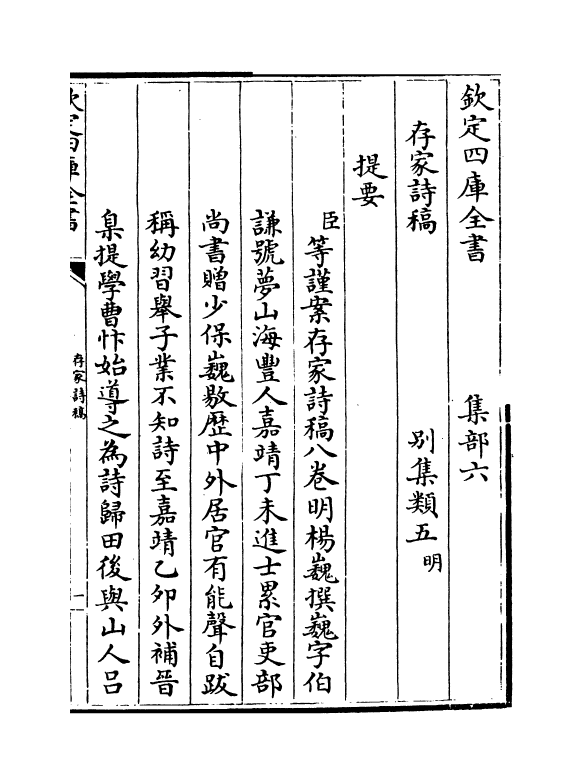 欽定四庫全書　集部六
存家詩稿　別集類五明
提要
臣等謹案存家詩稿八卷明楊巍撰巍字伯
謙號夢山海豐人嘉靖丁未進士累官吏部
尚書贈少保巍敭歴中外居官有能聲自跋
稱幼習舉子業不知詩至嘉靖乙夘外補晉
臬提學曹忭始導之為詩歸田後與山人吕
欽定四庫全書
存家詩稿
一